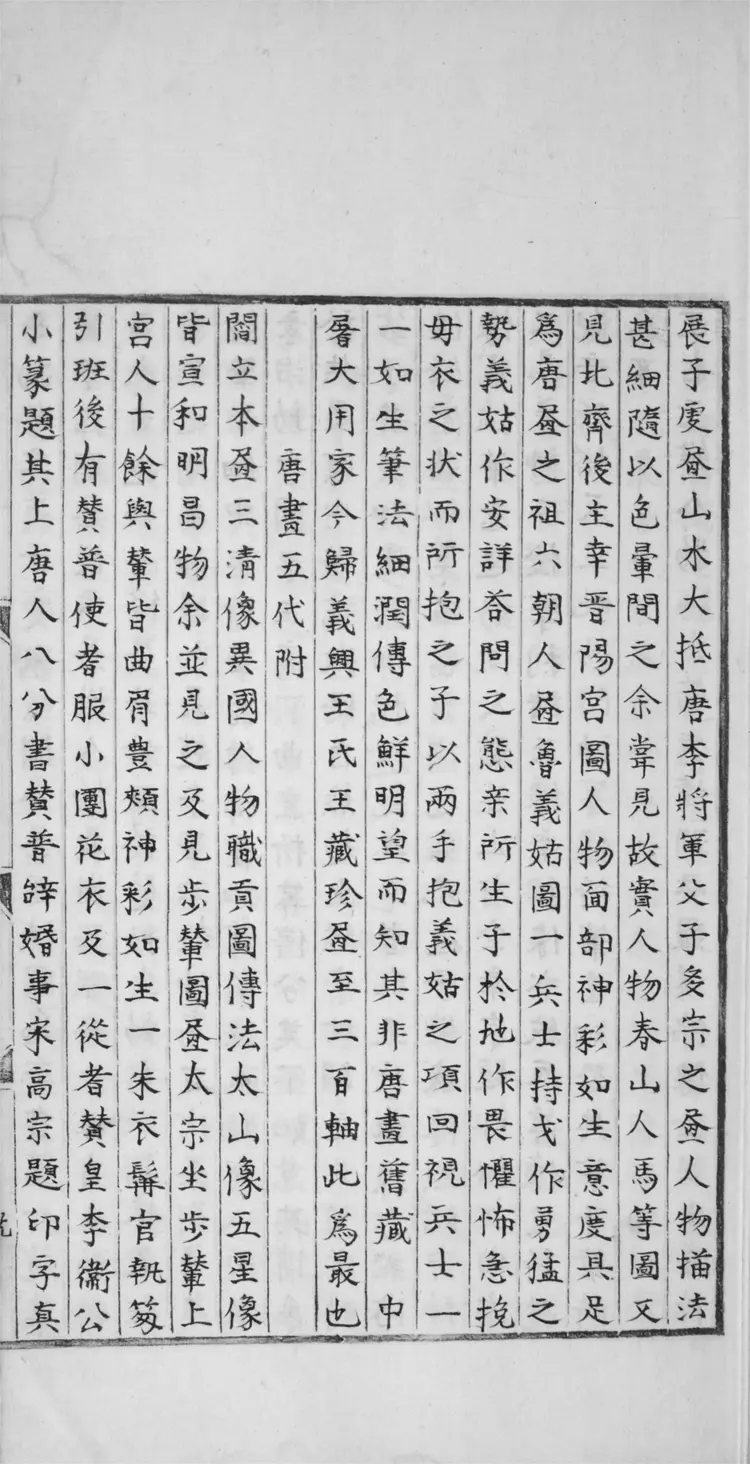 展子虔昼山水大抵唐李將軍父子多宗之昼人物描法
甚細隨以色暈間之余甞見故實人物春山人馬等圖又
見北齊後主幸晉陽宮圖人物面部神彩如生意度具足
爲唐昼之祖六朝人昼魯義姑圖一兵士持戈作勇猛之
勢義姑作安詳荅問之態亲所生子於地作畏懼怖急挽
毋衣之状而所抱之子以兩手抱義姑之項回視兵士一
一如生筆法細潤傳色鮮明望而知其非唐畫舊藏中
屠大用家今歸義興王氏王藏珍昼至三百軸此爲最也
唐畫五代附
閻立本昼三清像異國人物職貢圖傳法太山像五星像
皆宣和明昌物余並見之及見步輦圖昼太宗坐步輦上
宮人十餘輿輦皆曲眉豊頰神彩如生一朱衣髯官執笏
引班後有賛普使者服小團花衣及一從者賛皇李衞公
小篆題其上唐人八分書賛普辝婚事宋高宗題印字真